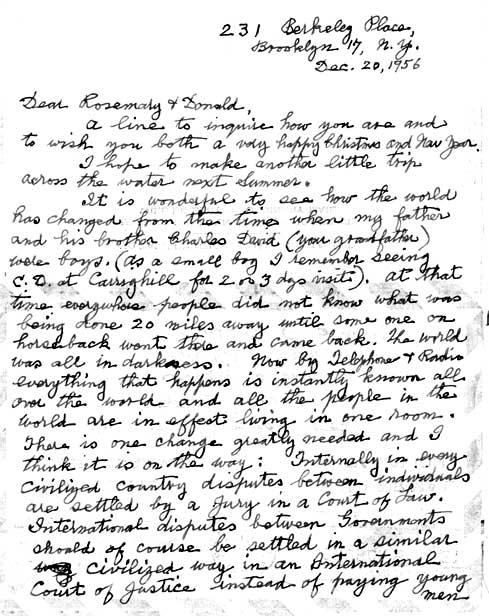 231 Berkeley Place,
Brooklyn 17, N.Y.
Dec. 20, 1956
Dear Rosemary & Donald,
A line to inquire how you are and
to wish you both a very happy Christmas and New Year.
I hope to make another little trip
across the water next summer.
It is wonderful to see how the world
has changed from the time when my father
and his brother Charles David (your grandfather)
were boys. (As a small boy I remember seeing
C. D. at Carsghill for 2 or 3 days visits). At that
time everywhere people did not know what was
being done 20 miles away until some one on
horseback went there and came back. The world
was all in darkness. Now by Telephone & Radio
everything that happens is instantly known all
over the world and all the people in the
world are in effect living in one room.
There is one change greatly needed and I
think it is on the way: Internally in every
civilized country disputes between individuals
are settled by a Jury in a Court of Law.
International disputes between Governments
should of course be settled in a similar
civilized way in an International
Court of Justice instead of paying young
men